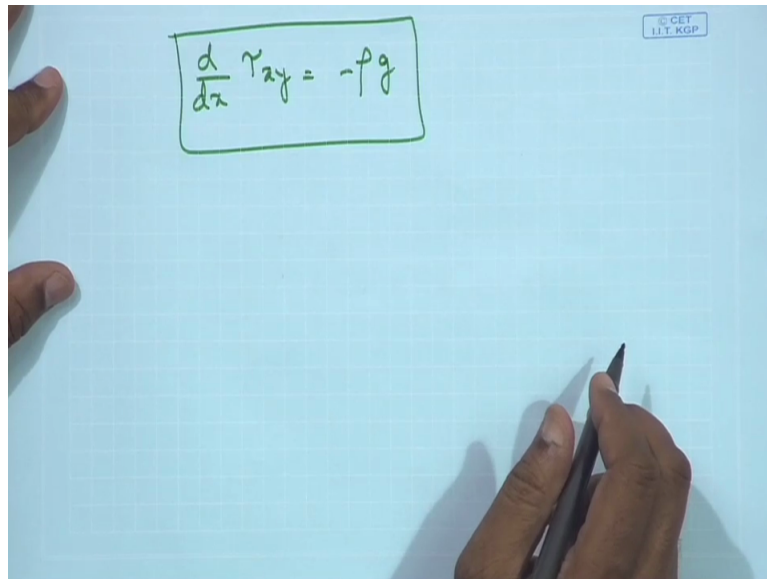 © CET
I.I.T. KGP
d/dx τxy = -ρg